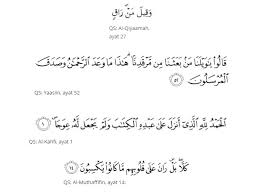 وَقِيلَ مَنْ ۜ رَاقٍ
QS: Al-Qiyaamah,
ayat 27
قَالُوا۟ يَـٰوَيْلَنَا مَنۢ بَعَثَنَا مِن مَّرْقَدِنَا ۜ ۗ هَـٰذَا مَا وَعَدَ ٱلرَّحْمَـٰنُ وَصَدَقَ
ٱلْمُرْسَلُونَ ٥٢
QS: Yaasiin, ayat 52
ٱلْحَمْدُ لِلَّهِ ٱلَّذِىٓ أَنزَلَ عَلَىٰ عَبْدِهِ ٱلْكِتَـٰبَ وَلَمْ يَجْعَل لَّهُۥ عِوَجَا ۜ ١
QS: Al-Kahfi, ayat 1
كَلَّا ۖ بَلْ ۜ رَانَ عَلَىٰ قُلُوبِهِم مَّا كَانُوا۟ يَكْسِبُونَ ١٤
QS: Al-Muthaffifin, ayat 14: